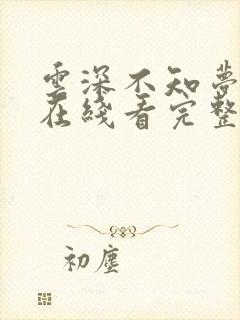 雲深不知夢
在綫看完整
初塵